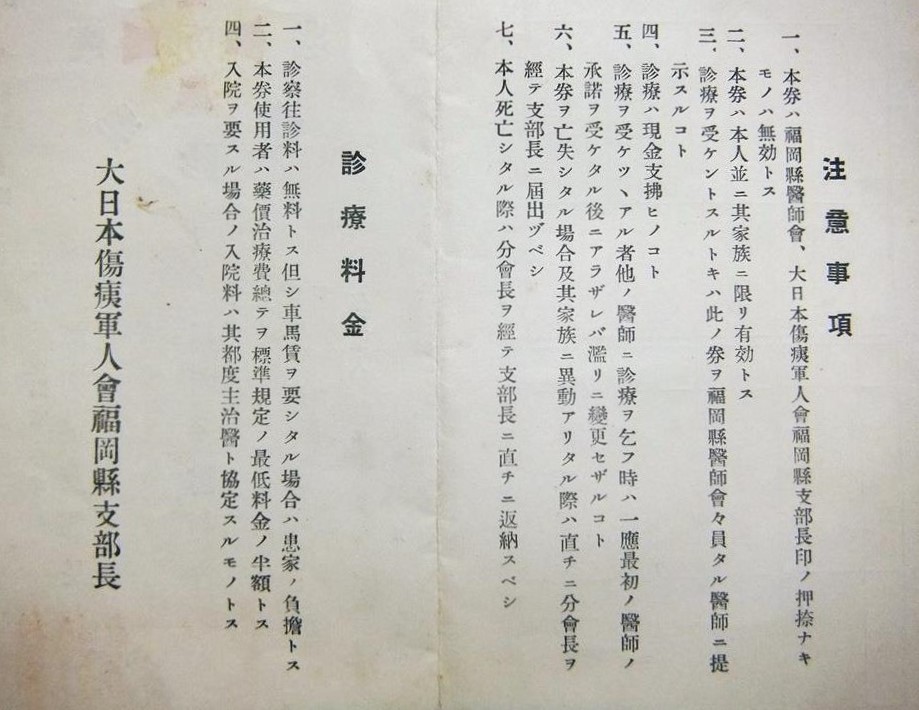 注意事項
一、本券ハ福岡縣醫師會、大日本傷痍軍人會福岡縣支部長印ノ押捺ナキ
モノハ無効トス
二、本券ハ本人並ニ其家族ニ限リ有効トス
三、診療ヲ受ケントスルトキハ此ノ券ヲ福岡縣醫師會々員タル醫師ニ提
示スルコト
四、診療ハ現金支拂ヒノコト
五、診療ヲ受ケツヽアル者他ノ醫師ニ診療ヲ乞フ時ハ一應最初ノ醫師ノ
承諾ヲ受ケタル後ニアラザレバ濫リニ變更セザルコト
六、本券ヲ亡失シタル場合及其家族ニ異動アリタル際ハ直チニ分會長ヲ
經テ支部長ニ屆出ヅベシ
七、本人死亡シタル際ハ分會長ヲ經テ支部長ニ直チニ返納スベシ
診療料金
一、診察往診料ハ無料トス但シ車馬賃ヲ要シタル場合ハ患家ノ負擔トス
二、本券使用者ハ藥價治療費總テヲ標準規定ノ最低料金ノ半額トス
四、入院ヲ要スル場合ノ入院料ハ其都度主治醫ト協定スルモノトス
大日本傷痍軍人會福岡縣支部長